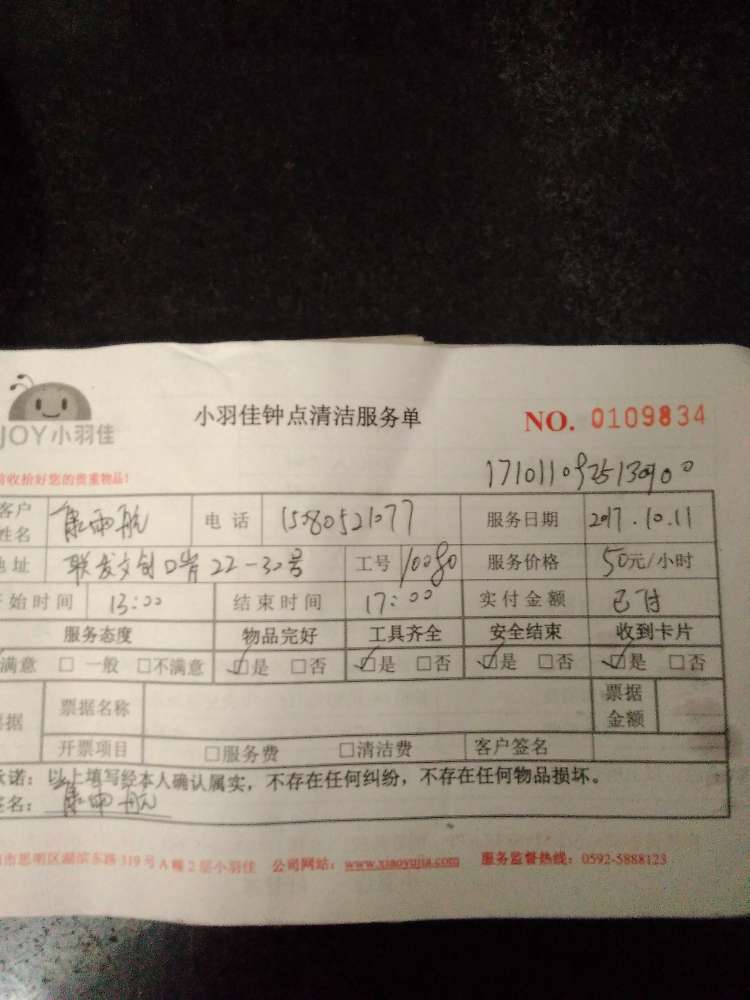 JOY小羽佳
小羽佳钟点清洁服务单
NO. 0109834
收拾好您的贵重物品!
客户姓名 康雨航 电话 15080521077 服务日期 2017.10.11
地址 联发文创口岸22-30号 工号 10080 服务价格 50元/小时
开始时间 13:00 结束时间 17:00 实付金额 已付
服务态度 物品完好 工具齐全 安全结束 收到卡片
满意 □一般 □不满意 ☑是 □否 ☑是 □否 ☑是 □否 ☑是 □否
票据 票据名称 票据金额
开票项目 □服务费 □清洁费 客户签名
承诺:以上填写经本人确认属实,不存在任何纠纷,不存在任何物品损坏。
签名:康雨航
市思明区湖滨东路319号A幢2层小羽佳 公司网站:www.xiaoyujia.com 服务监督热线:0592-5888123